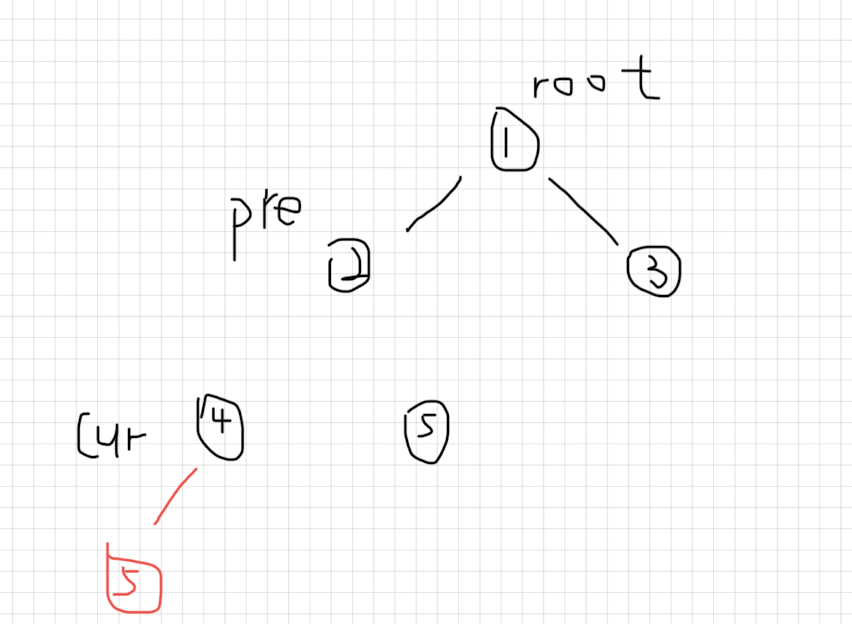 root
1
pre
2
3
Cur
4
5
5